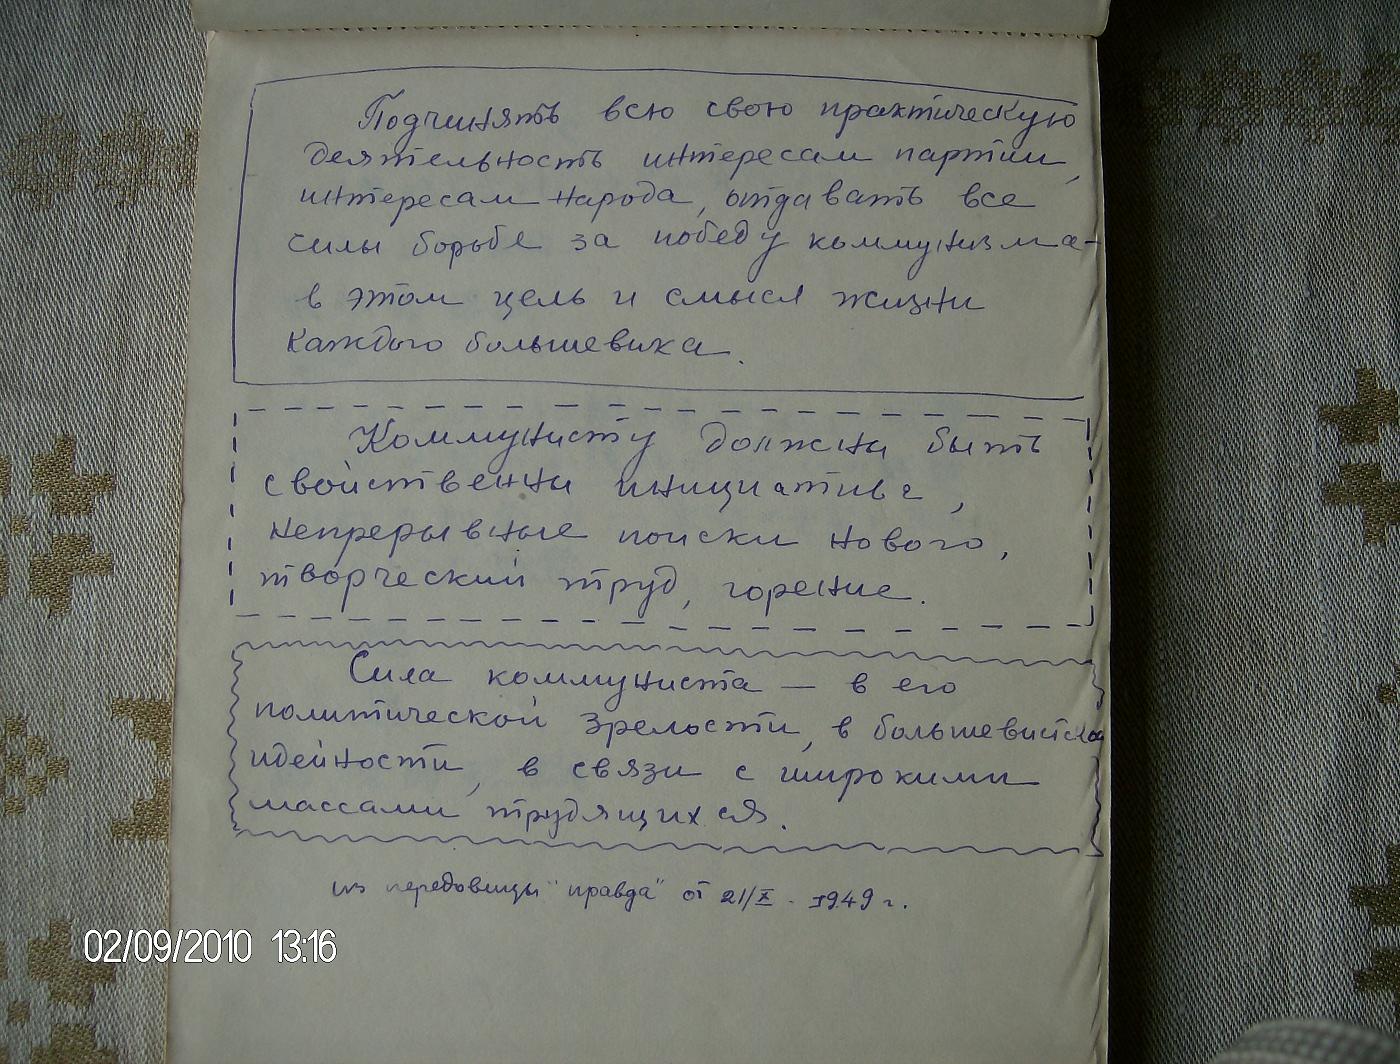 Подчинять всю свою практическую
деятельность интересам партии,
интересам народа, отдавать все
силы борьбе за победу коммунизма-
в этом цель и смысл жизни
каждого большевика.
Коммунисту должны быть
свойственны инициатива,
непрерывные поиски нового,
творческий труд, горение.
Сила коммуниста — в его
политической зрелости, в большевистской
идейности, в связи с широкими
массами трудящихся.
из передовицы "правда" от 21/X - 1949 г.
02/09/2010 13:16